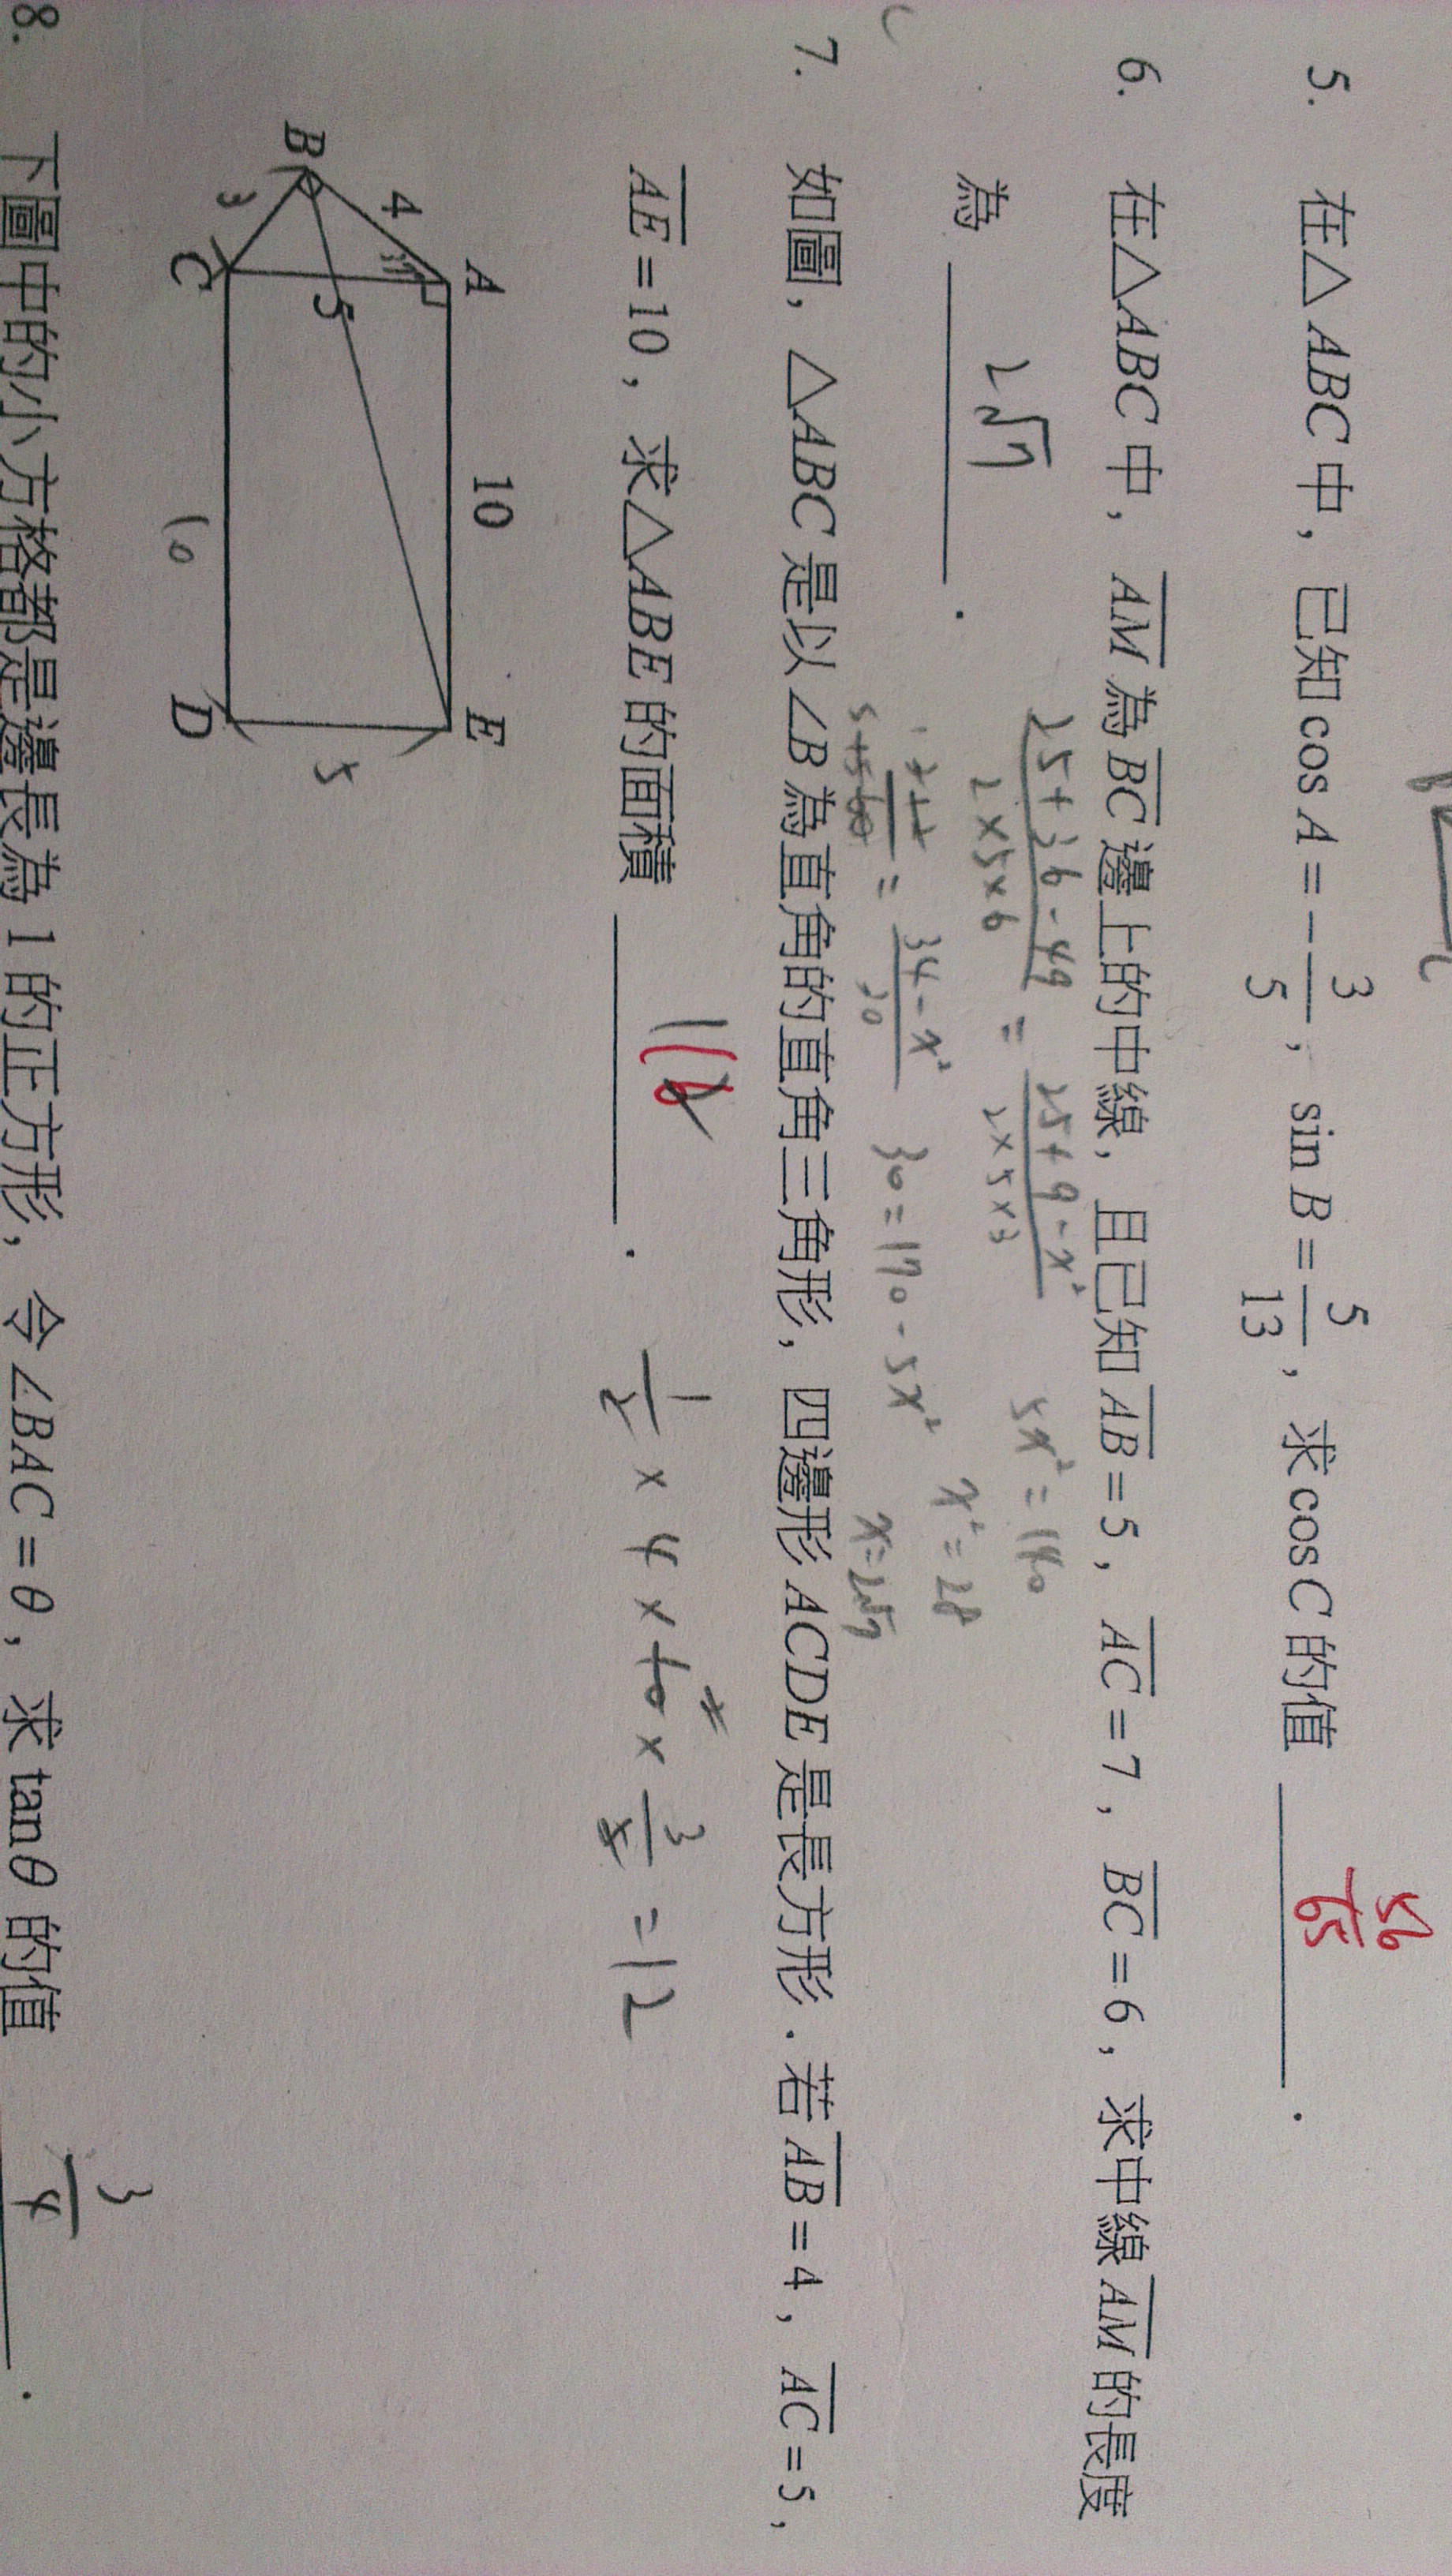 5. 在△ABC中，已知cos A = -3/5，sin B = 5/13，求cos C的值 56/65．
6. 在△ABC中，AM為BC邊上的中線，且已知AB=5，AC=7，BC=6，求中線AM的長度
為 2√7．
25+36-49 / 2×5×6 = 25+9-x² / 2×5×3
= 34-x² / 30
30=170-5x²
5x²=140
x²=28
x=2√7
7. 如圖，△ABC是以∠B為直角的直角三角形，四邊形ACDE是長方形．若AB=4，AC=5，
AE=10，求△ABE的面積 16．
1/2 × 4 × 10 × 3/5 = 12
A
10
E
4
B
5
5
3
C
D
10
8. 下圖中的小方格都是邊長為1的正方形，令∠BAC=θ，求tanθ的值 3/4．